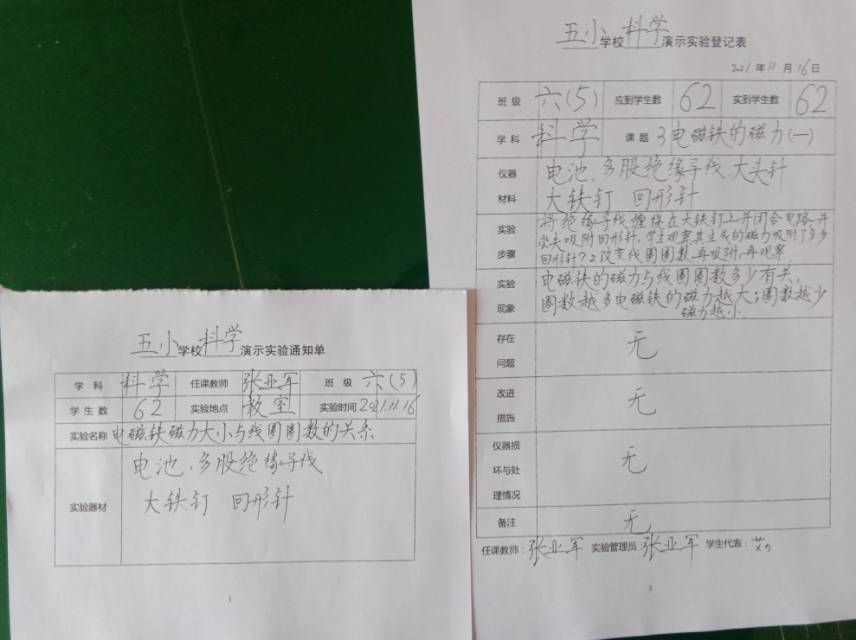 五小学校科学演示实验通知单
学科 科学 任课教师 张业军 班级 六(5)
学生数 62 实验地点 教室 实验时间 2021.11.16
实验名称 电磁铁磁力大小与线圈圈数的关系
实验器材
电池、多股绝缘导线
大铁钉 回形针
1
五小学校科学演示实验登记表
2021年11月16日
班级 六(5) 应到学生数 62 实到学生数 62
学科 科学 课题 3电磁铁的磁力(一)
仪器材料
电池、多股绝缘导线、大头针
大铁钉 回形针
实验步骤
将绝缘导线缠绕在大铁钉上并闭合电路,并
尝去吸附回形针,学生观察其生成的磁力吸附了多少
回形针?2改变线圈圈数,再吸附,再观察
实验现象
电磁铁的磁力与线圈圈数多少有关,
圈数越多电磁铁的磁力越大;圈数越少
磁力越小.
存在问题 无
改进措施 无
仪器损坏与处理情况 无
备注 无
任课教师:张业军 实验管理员:张业军 学生代表:
3